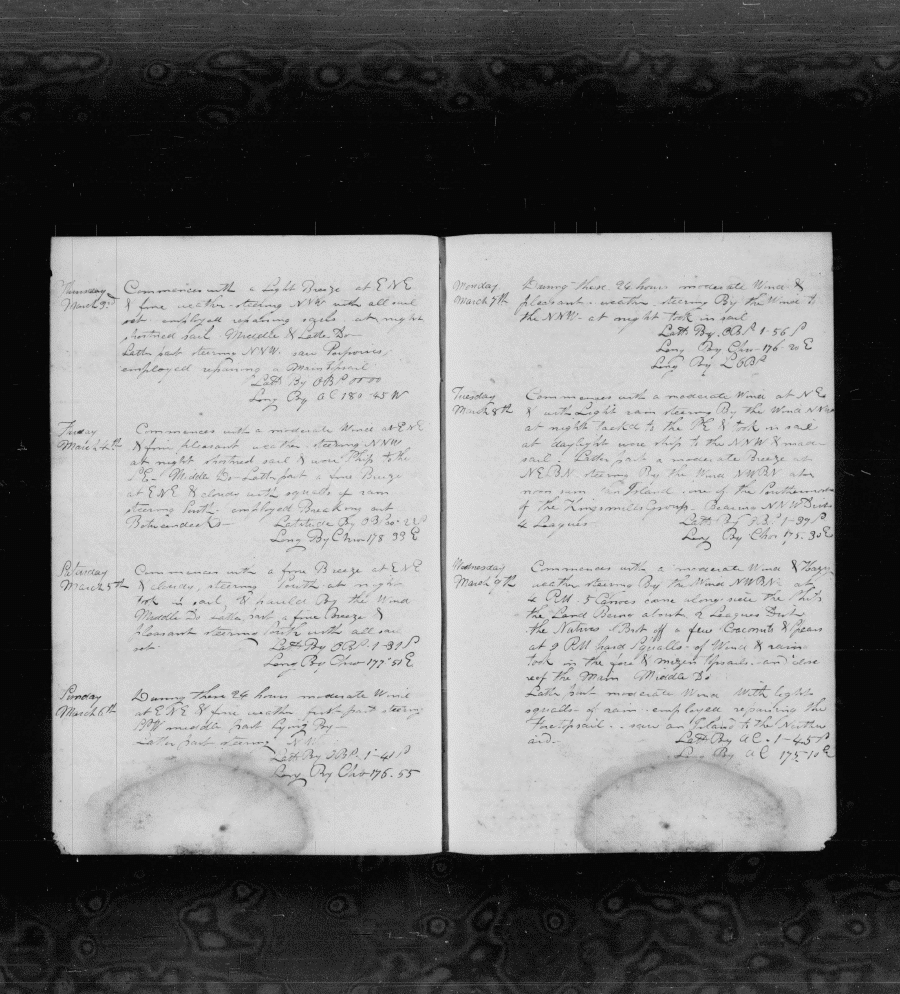 Thursday
March 3rd
Commences with a Light Breze at E N E
& fine weather steering NNW with all sail
set employed repairing sails at night
shortned sail Middle & Latter Do
Latter part steering NNW. saw Porpoises,
employed repairing a Maintopsail
Latt By OBS 00 00
Long By A C 180 45 W
Friday
March 4th
Commences with a moderate Wind at E N E
& fine pleasant weather steering NNW
at night shortned sail & wore Ship to the
S E Middle Do Latter part a fine Breeze
at E N E & cloudy with squalls of rain
steering South employed Breaking out
Betweendecks
Latitude By OBS 00 2 S
Long By Chro 178 33 E
Saturday
March 5th
Commences with a fine Breeze at E N E
& cloudy, steering South at night
took in sail, & hauld By the Wind
Middle Do Latter part a fine Breeze &
pleasant steering South with all sail
set
Latt By OBS 1-39 S
Long By Chro 177 51 E
Sunday
March 6th
During these 24 hours moderate Wind
at E N E & fine weather first part steering
middle part Lying By
Latter part steering NW
Latt By OBS 1-41 S
Long By Chro 176.55
Monday
March 7th
During these 24 hours moderate Wind &
pleasant weather steering By the Wind to
the NNW at night took in sail
Latt By OBS 1-56 S
Long By Chro 176-20 E
Long By L OBS
Tuesday
March 8th
Commences with a moderate Wind at N E
& with Light rain steering By the Wind NNW
at night tackd to the SE & took in sail
at daylight wore ship to the NNW & made
sail. Latter part a moderate Breeze at
NEBN steering By the Wind NWBN at
noon saw an Island one of the Southermost
of the Kingsmills Group Bearing NNW Dist
4 Leagues
Latt By OBS 1-37 S
Long By Chro 175.30 E
Wednesday
March 9th
Commences with a moderate Wind & Hazy
weather steering By the Wind NWBN at
4 P.M 5 Canoes came along side the Ship
the Land Being about 2 Leagues Dist
the Natives Brt off a few Cocoanuts & Spears
at 9 P.M hard Squalls of Wind & rain
took in the fore & mizen topsails and close
reef the Main Middle Do
Latter part moderate Wind With light
squalls of rain employed repairing the
Foretopsail saw an Island to the Northw
ard
Latt By A C 1-45 S
Long By A C 175-10 E